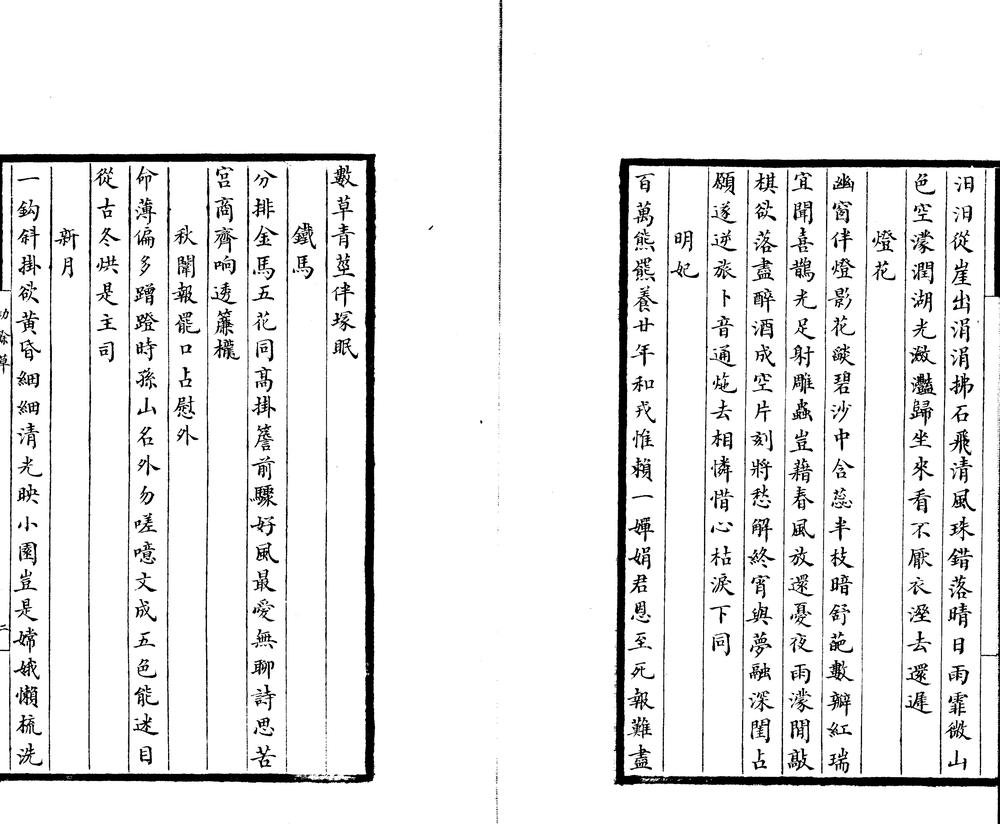 汩汩從崖出涓涓拂石飛清風珠錯落晴日雨霏微山
色空濛潤湖光瀲灩歸坐來看不厭衣溼去還遲
燈花
幽窗伴燈影花燄碧沙中含蕊半枝暗舒葩數瓣紅瑞
宜聞喜鵲光足射雕蟲豈藉春風放還憂夜雨濛閒敲
棋欲落盡醉酒成空片刻將愁解終宵與夢融深閨占
願遂逆旅卜音通炧去相憐惜心枯淚下同
明妃
百萬熊羆養廿年和戎惟賴一嬋娟君恩至死報難盡
數草青塋伴塚眠
鐵馬
分排金馬五花同高掛簷前驟好風最愛無聊詩思苦
宮商齊响透簾櫳
秋闈報罷口占慰外
命薄偏多蹭蹬時孫山名外勿嗟噫文成五色能迷目
從古冬烘是主司
新月
一鈎斜掛欲黃昏細細清光映小園豈是嫦娥懶梳洗
草
二